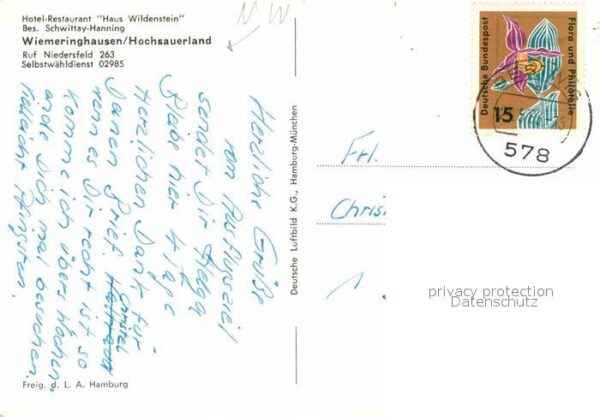 Hotel-Restaurant "Haus Wildenstein"
Bes. Schwittay-Hanning
Wiemeringhausen/Hochsauerland
Ruf Niedersfeld 263
Selbstwähldienst 02985
N W
Herzliche Grüße
vom Ausflugsziel
sendet Dir Helga
Bleibe hier 4 Tage
Herzlichen Dank für
Deinen Brief. Christel
wenn es Dir recht ist so
komme ich übers Wochen
ende Dich mal besuchen.
Vielleicht Pfingsten.
Freig. d. L. A. Hamburg
Deutsche Luftbild K.G., Hamburg-München
Deutsche Bundespost
Flora und Philatelie
15
578
Frl.
Chris
privacy protection
Datenschutz